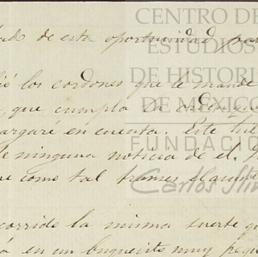 de esta oportunidad para
los cordones que le mandé
que cumpla la
cargaré en cuenta. Este
ninguna noticia de el.
como tal
corrido la misma suerte que
en un buquecito muy
CENTRO DE
ESTUDIOS
DE HISTORIA
DE MÉXICO
FUNDACIÓN
Carlos Slim